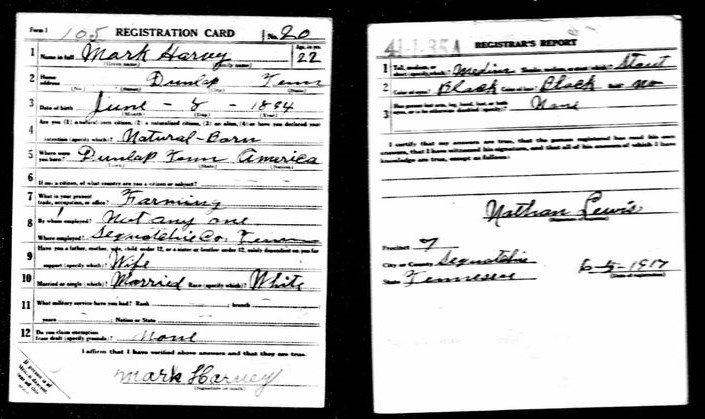 Form 1 105 REGISTRATION CARD No. 20
1 Name in full Mark Harvey Age, in yrs. 22
(Given name) (Family name)
2 Home address Dunlap Tenn
(No.) (Street) (City) (State)
3 Date of birth June - 8 - 1894
(Month) (Day) (Year)
4 Are you (1) a natural-born citizen, (2) a naturalized citizen, (3) an alien, (4) or have you declared your
intention (specify which)? Natural-Born
5 Where were you born? Dunlap Tenn America
(Town) (State) (Nation)
6 If not a citizen, of what country are you a citizen or subject?
7 What is your present trade, occupation, or office? Farming
8 By whom employed? Not any one
Where employed? Sequatchie Co. Tenn
9 Have you a father, mother, wife, child under 12, or a sister or brother under 12, solely dependent on you for
support (specify which)? Wife
10 Married or single (which)? Married Race (specify which)? White
11 What military service have you had? Rank ; branch
years ; Nation or State
12 Do you claim exemption from draft (specify grounds)? None
I affirm that I have verified above answers and that they are true.
Mark Harvey
(Signature or mark)
41-1-35 A REGISTRAR'S REPORT
1 Tall, medium, or short (specify which)? Medium Slender, medium, or stout (which)? Stout
2 Color of eyes? Black Color of hair? Black Bald? no
3 Has person lost arm, leg, hand, foot, or both eyes, or is he otherwise disabled (specify)? None
I certify that my answers are true, that the person registered has read his own
answers, that I have witnessed his signature, and that all of his answers of which I have
knowledge are true, except as follows:
Nathan Lewis
Precinct 7
City or County Sequatchie
State Tennessee 6-5-1917
(Date of registration)